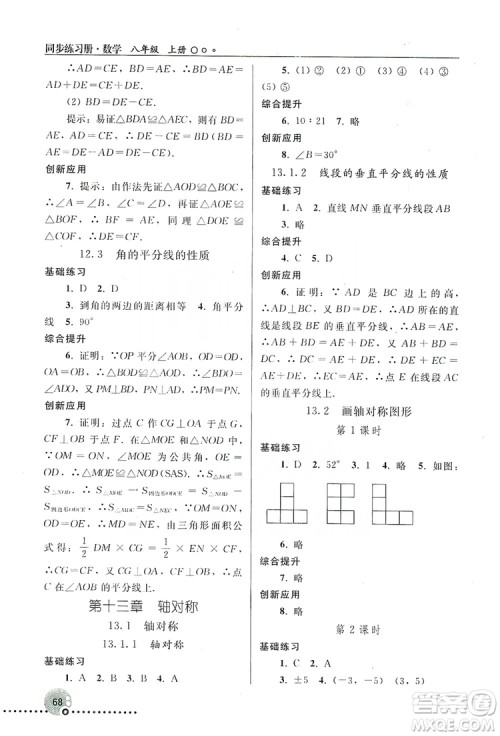 同步练习册·数学 八年级 上册
∴AD=CE,∴DE=AD+AE=CE+BD.
(2) BD=DE-CE或BD=DE+CE.
提示:易证△BDA≌△AEC,∴BD=
AE,AD=CE,∴BD=AE=DE-CE.
创新应用
7. 提示:由作法先证△AOD≌△BOC,
∴∠A=∠B,再证△ACE≌△BDE,∴AE
=BE,∴△AOE≌△BOE,同理△DOE≌
△COE,△AOF≌△BOF.
12.3 角的平分线的性质
基础练习
1. D 2. D
3. 到角的两边的距离相等 4. 角平分
线 5. 90°
综合提升
6. 证明:∵OP平分∠AOB,∴∠AOP=
∠BOP.又∵OA=OB,OD=OD,∴△AOD
≌△BOD,∴∠ADO=∠BDO,∴∠ADP=
∠BDP.又∵PM⊥BD,PN⊥AD,∴PM=PN.
创新应用
7. 证明:过点C作CG⊥OA于G,
CF⊥OB于F.在△MOE和△NOD中,OM
=ON,∠MOE为公共角,OE=OD,
∴△MOE≌△NOD(SAS).∴S△MOE=
S△NOD,∴S△MOE-S四边形ODCE=S△NOD-
S四边形ODCE,∴S△MDC=S△NEC,由三角形面积公
式得:1/2 DM×CG=1/2×EN×CF.∵OM=
ON,OD=OE,∴DM=EN,∴CG=CF.
又∵CG⊥OA,CF⊥OB,∴点C在∠AOB的平分线上.
第十三章 轴对称
13.1 轴对称
13.1.1 轴对称
基础练习
1. A 2. C 3. A 4. 3
68
5. (1) ① (2) ② (3) ④ (4) ③
(5) ⑤
综合提升
6. 10:21 7. 略
创新应用
8. ∠B=30°
13.1.2 线段的垂直平分线的性质
基础练习
1. A 2. 直线MN垂直平分线段AB
3. 略
综合提升
4. C 5. D
创新应用
6. 证明:∵AD是高,∴AD⊥BC.又
∵BD=DE,∴AD所在的直线是线段BE的垂直平分线,∴AB=AE,∴AB+
BD=AE+DE.又∵AB+BD=DC,∴DC
=AE+DE,∴DE+EC=AE+DE,∴EC=AE,∴点E在线段AC
的垂直平分线上.
13.2 画轴对称图形
第1课时
基础练习
1. D 2. 52° 3. B 4. 略 5. 如图:
综合提升
6. 略
创新应用
7. 略
第2课时
基础练习
1. C 2. A 3. 略 4. (3,5)